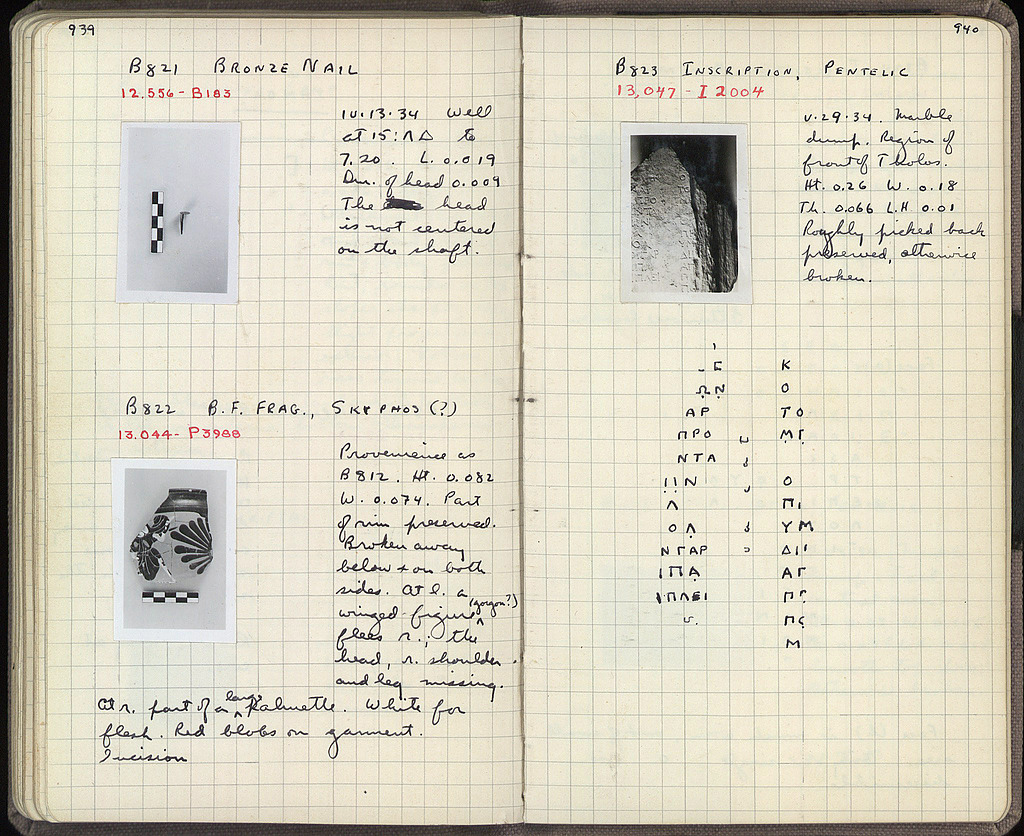 939
B821 BRONZE NAIL
12.556 - B183
IV.13.34 Well
at 15:ΛΔ to
7.20. L. 0.019
Dm. of head 0.009
The head
is not centered
on the shaft.
B822 B.F. FRAG., SKYPHOS (?)
13.044 - P3988
Provenience as
B812. Ht. 0.082
W. 0.074. Part
of rim preserved.
Broken away
below + on both
sides. At l. a
winged figure (gorgon?)
flees r.; the
head, r. shoulder
and leg missing.
At r. part of a large Palmette. White for
flesh. Red blobs on garment.
Incision
940
B823 INSCRIPTION, PENTELIC
13,047 - I 2004
V.29.34. Marble
dump. Region of
front of Tholos.
Ht. 0.26 W. 0.18
Th. 0.066 L.H 0.01
Roughly picked back
preserved, otherwise
broken.
Κ
ΩΝ Ο
ΑΡ ΤΟ
ΠΡΟ ΜΓ
ΝΤΑ
ΙΙΝ Ο
Λ ΠΙ
ΟΛ ΥΜ
ΝΓΑΡ ΔΙΙ
ΙΠΑ ΑΓ
ΙΠΛΕΙ ΠΓ
υ. Πς
Μ